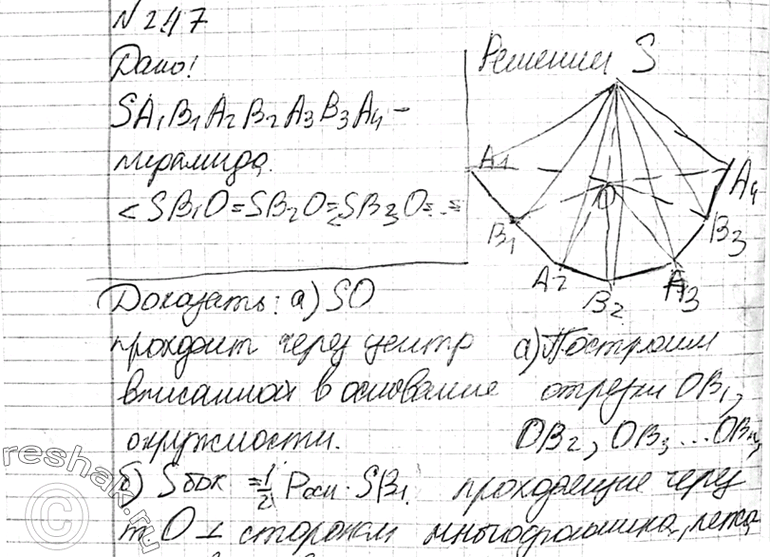 N 247
Дано:
SA1B1A2B2A3B3A4 –
пирамида.
<SB1O=SB2O=SB3O=..=
Решение
S
A1
A4
O
B1
B3
A2
B2
A3
Доказать: а) SO
проходит через центр
вписанной в основание
окружности.
б) Sбок = 1/2 Pосн · SB1.
а) Построим
отрезки OB1,
OB2, OB3 ... OBn,
проходящие через
т. O ⊥ сторонам многогранника, 
reshak.ru
©